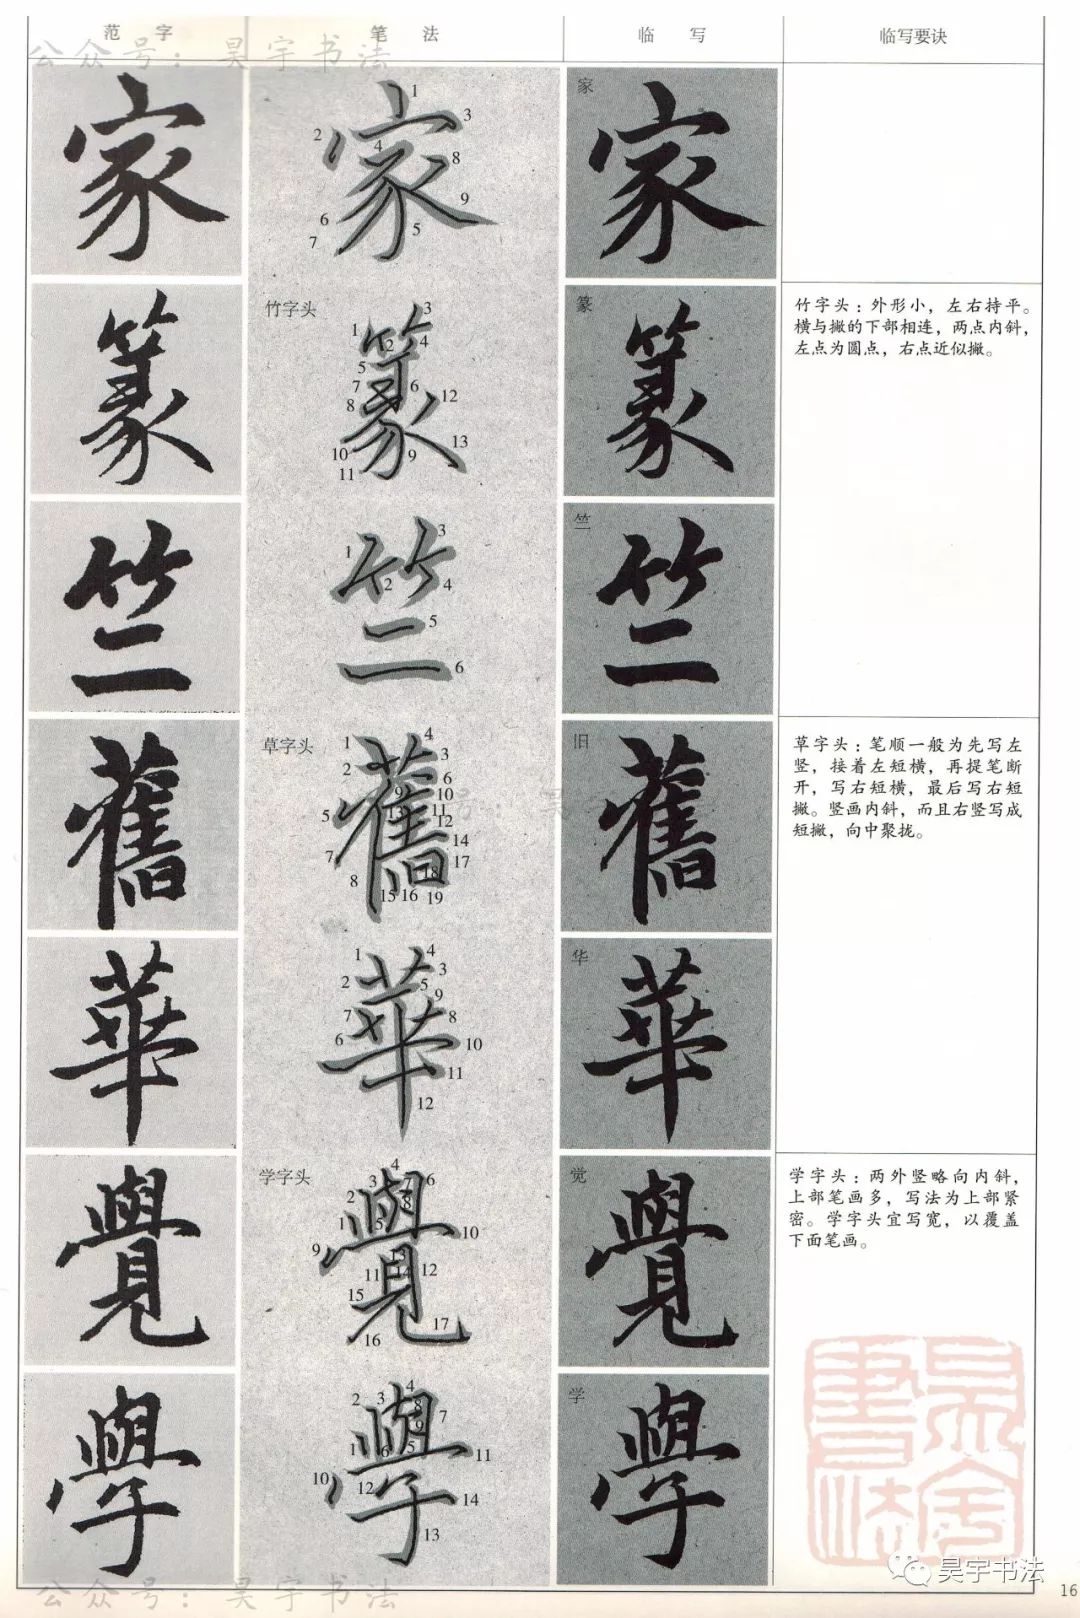 范 字 笔 法 临 写 临写要诀
公众号：昊宇书法
家 1 2 3 4 5 6 7 8 9 家 家
篆 竹字头 1 2 3 4 5 6 7 8 9 10 11 12 13 篆 篆
竹字头：外形小，左右持平。
横与撇的下部相连，两点内斜，
左点为圆点，右点近似撇。
竺 1 2 3 4 5 6 竺 竺
舊 草字头 1 2 3 4 5 6 7 8 9 10 11 12 13 14 15 16 17 18 19 旧 舊
草字头：笔顺一般为先写左
竖，接着左短横，再提笔断
开，写右短横，最后写右短
撇。竖画内斜，而且右竖写成
短撇，向中聚拢。
華 1 2 3 4 5 6 7 8 9 10 11 12 华 華
覺 学字头 1 2 3 4 5 6 7 8 9 10 11 12 13 14 15 16 17 觉 覺
学字头：两外竖略向内斜，
上部笔画多，写法为上部紧
密。学字头宜写宽，以覆盖
下面笔画。
學 1 2 3 4 5 6 7 8 9 10 11 12 13 14 学 學
昊宇書法
昊宇书法
公众号：昊宇书法
16